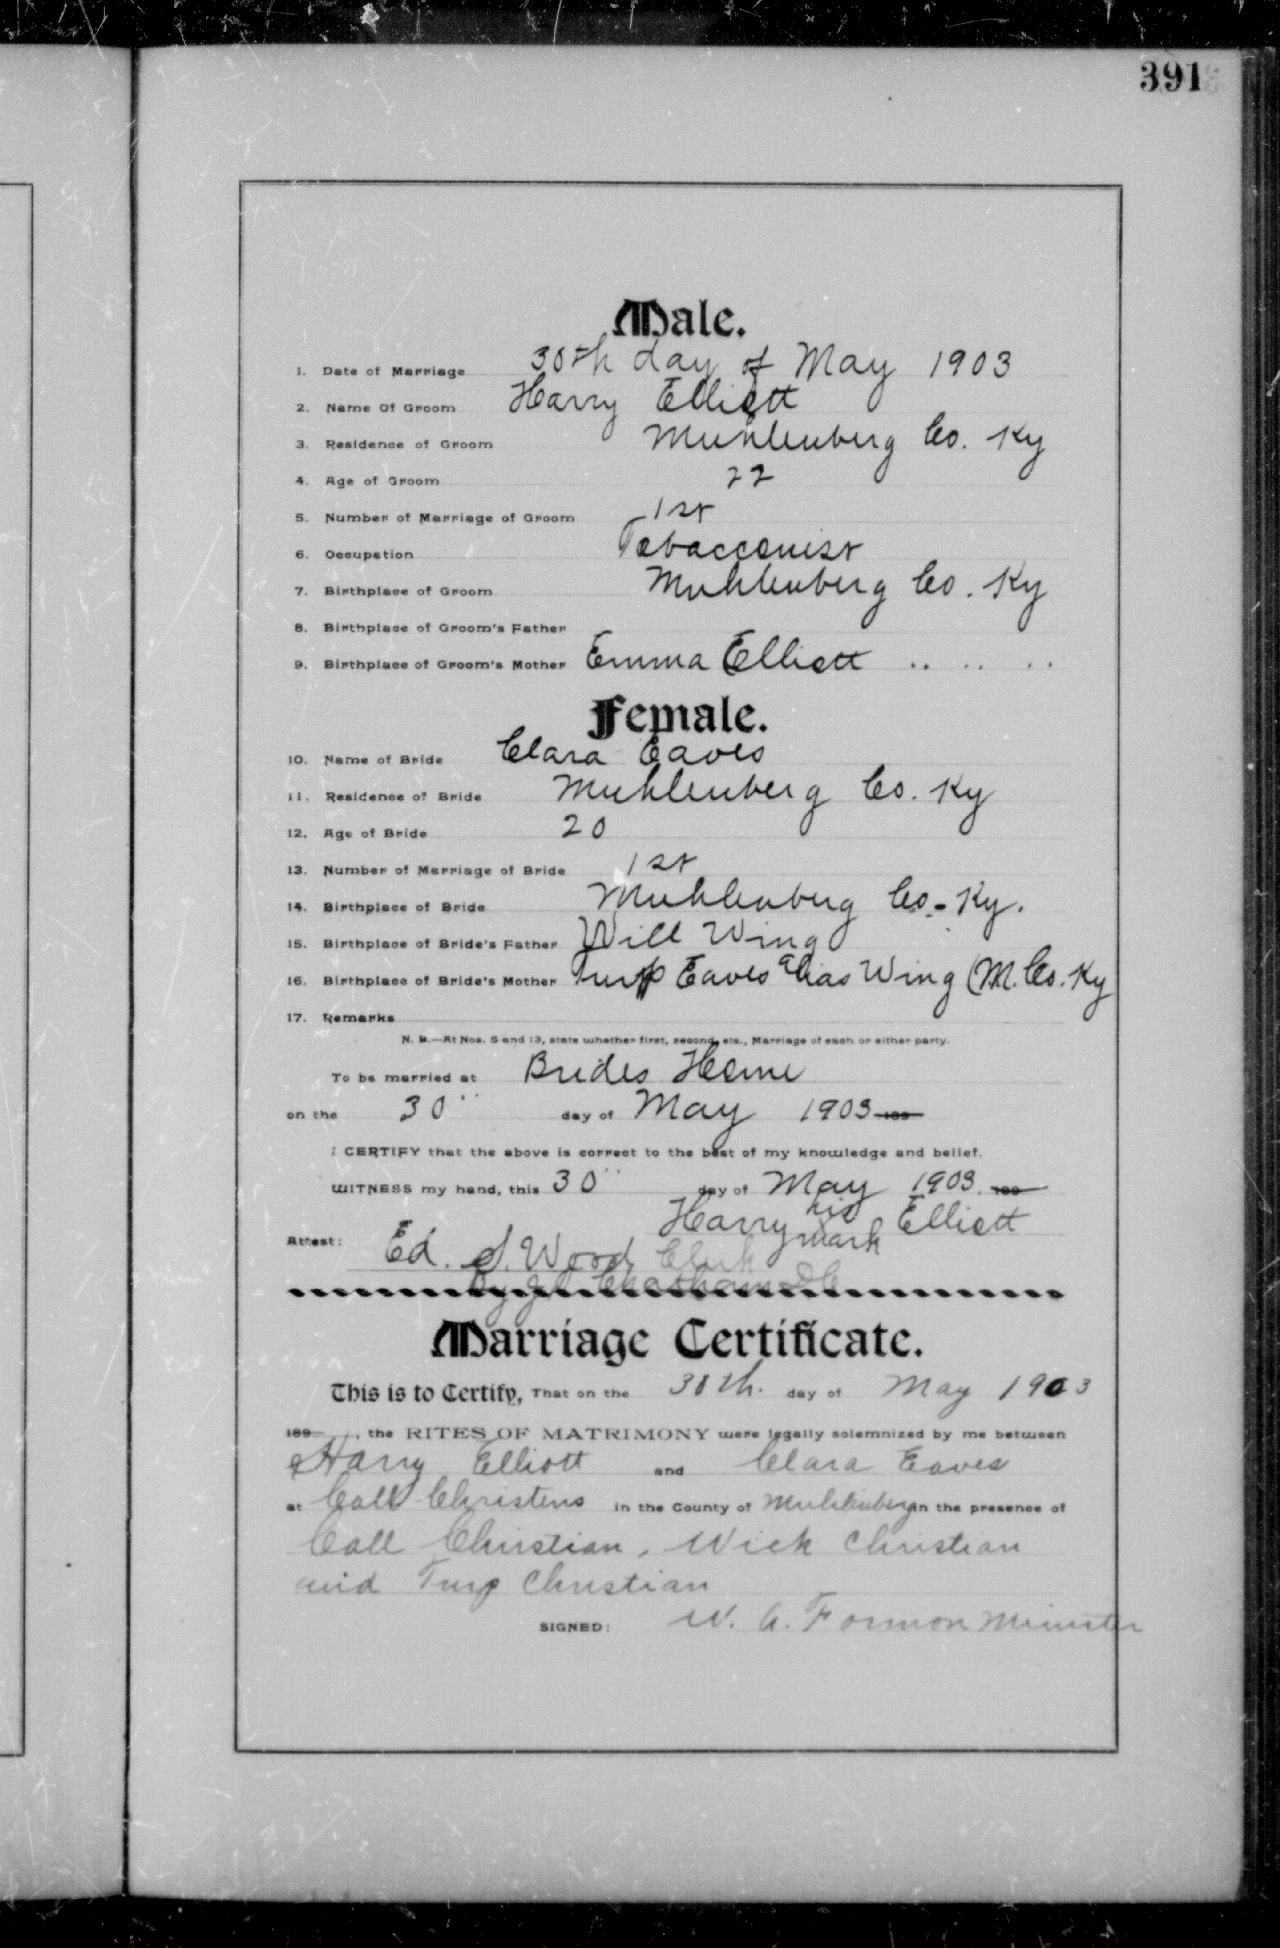 391
Male.
1. Date of Marriage 30th day of May 1903
2. Name Of Groom Harry Elliott
3. Residence of Groom Muhlenberg Co. Ky
4. Age of Groom 22
5. Number of Marriage of Groom 1st
6. Occupation Tobacconist
7. Birthplace of Groom Muhlenberg Co. Ky
8. Birthplace of Groom's Father
9. Birthplace of Groom's Mother Emma Elliott .. .. ..
Female.
10. Name of Bride Clara Eaves
11. Residence of Bride Muhlenberg Co. Ky
12. Age of Bride 20
13. Number of Marriage of Bride 1st
14. Birthplace of Bride Muhlenberg Co. Ky.
15. Birthplace of Bride's Father Will Wing
16. Birthplace of Bride's Mother Turp Eaves alias Wing (M. Co. Ky
17. Remarks
N. B.—At Nos. 5 and 13, state whether first, second, etc., Marriage of each or either party.
To be married at Brides Home
on the 30" day of May 1903 189
I CERTIFY that the above is correct to the best of my knowledge and belief.
WITNESS my hand, this 30" day of May 1903. 189
Harry his mark Elliott
Attest: Ed. S. Wood Clerk
By DC
Marriage Certificate.
This is to Certify, That on the 30th. day of May 1903
189 , the RITES OF MATRIMONY were legally solemnized by me between
Harry Elliott and Clara Eaves
at Call Christens in the County of Muhlenberg in the presence of
Call Christian, Wick Christian
and Turp Christian
SIGNED: W. A. Formon Minister